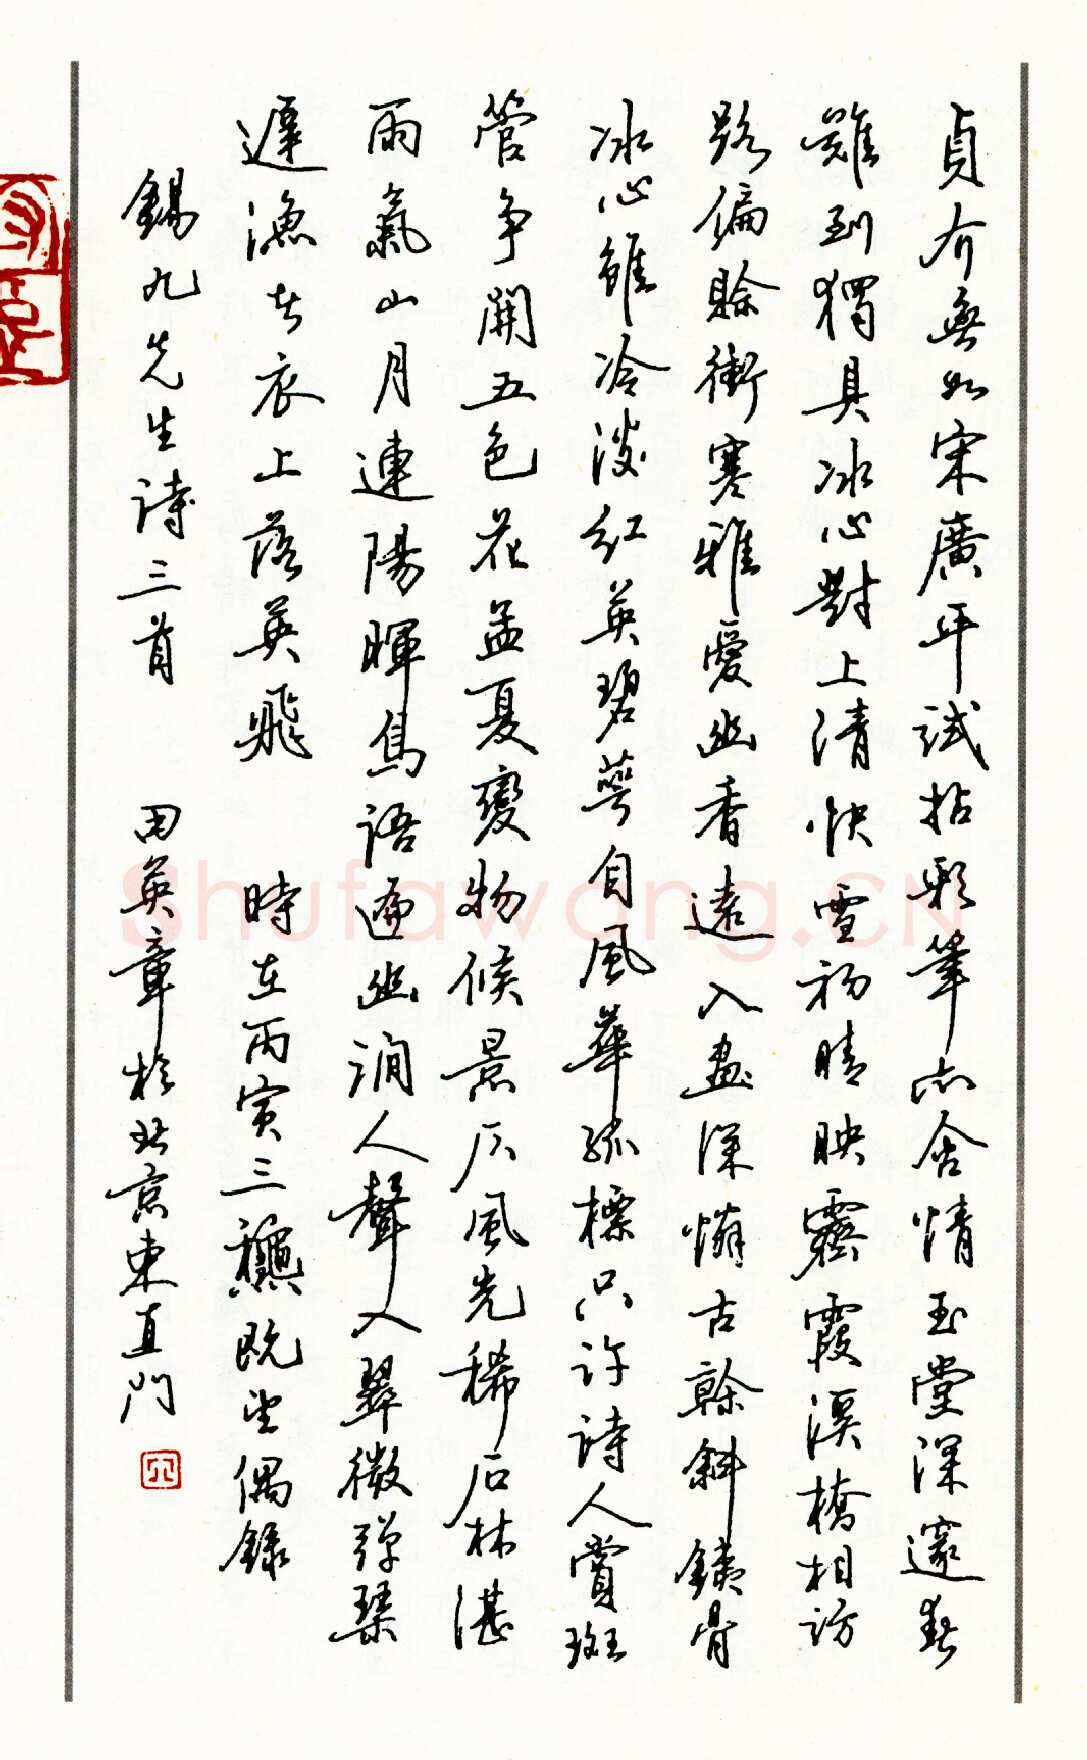 貞介無如宋廣平試拈彩筆亦含情玉堂深邃春
難到獨具冰心對上清快雪初晴映霽霞溪橋相訪
路偏賒衝寒雅愛幽香遠入畫深憐古榦斜鐵骨
冰心雖冷淡紅英碧萼自風華孤標只許詩人賞斑
管爭開五色花孟夏變物候景仄風光稀石林湛
雨氣山月連陽暉鳥語遍幽澗人聲入翠微彈琴
遲漁者衣上落英飛 時在丙寅三龝既望偶錄
錫九先生詩三首 田英章於北京東直門
Shufawang.CN